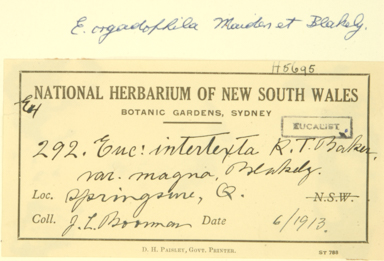 E. orgadophila Maiden et Blakely.
H5695
NATIONAL HERBARIUM OF NEW SOUTH WALES
BOTANIC GARDENS, SYDNEY
EUCALIST
292. Euc: intertexta R.T. Baker,
var. magna, Blakely.
Loc. Springsure, Q. N.S.W.
Coll. J.L. Boorman Date 6/1913.
D. H. PAISLEY, GOVT. PRINTER.